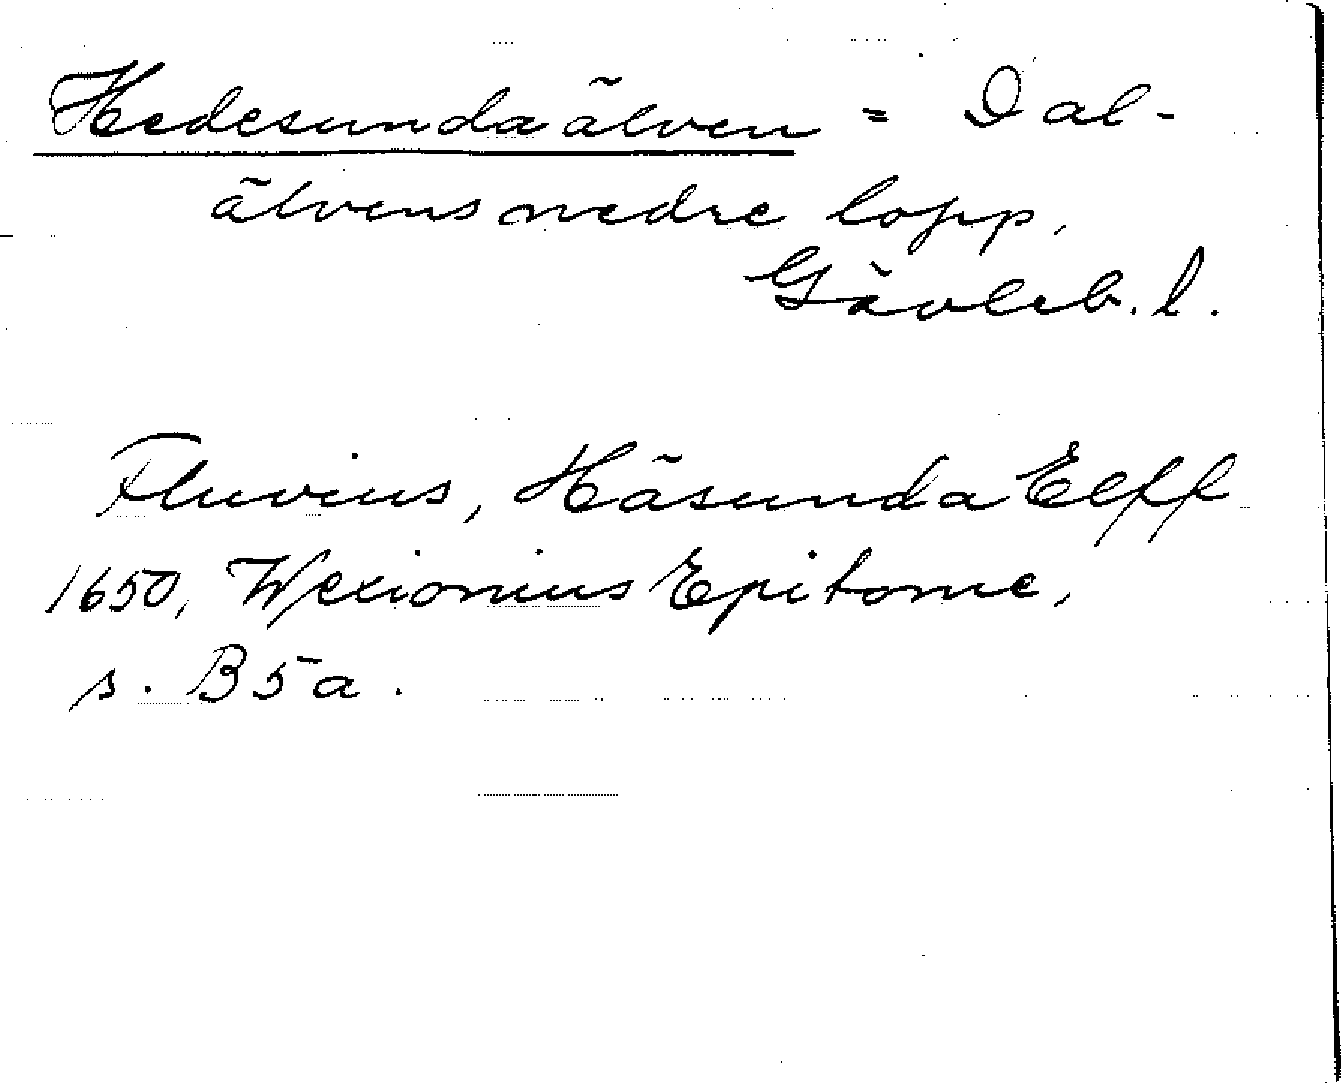 Hedesundaälven = Dal-
älvens nedre lopp.
Gävleb. l.
Fluvius, Häsunda Elff
1650, Wexionius Epitome,
s. B5a.